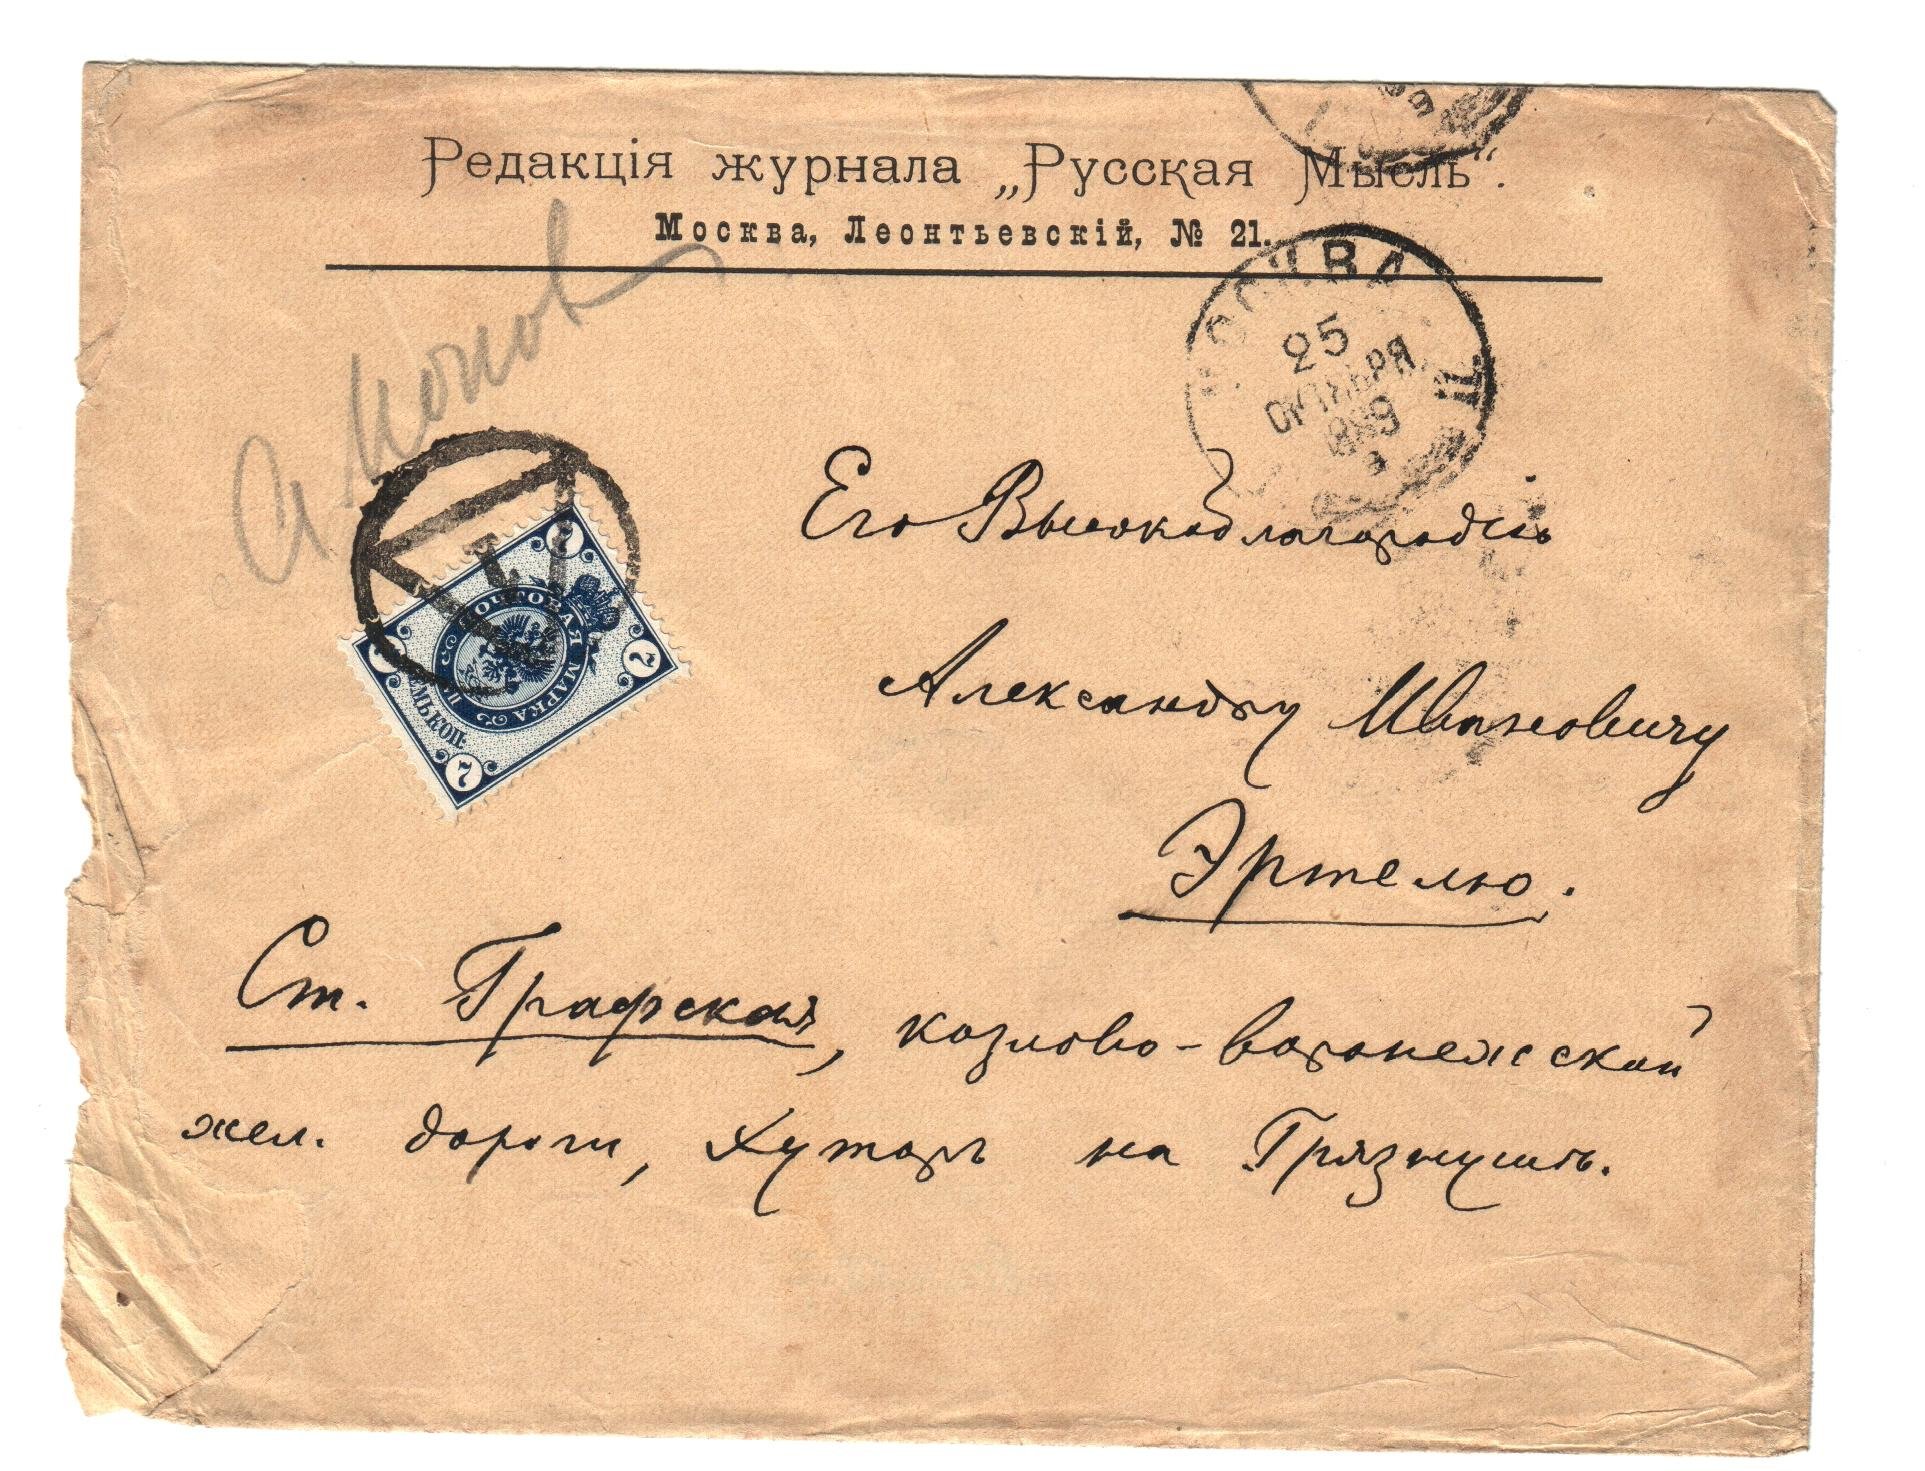 Редакція журнала „Русская Мысль“.
Москва, Леонтьевскій, № 21.
МОСКВА
25
ОКТЯБРЯ
1889
Его Высокоблагородію
Александру Ивановичу
Эртелю.
ПОЧТОВАЯ МАРКА
СЕМЬ КОП.
7
7
7
7
Ст. Графская, козлово-воронежской
жел. дороги, хуторъ на Грязнушѣ.